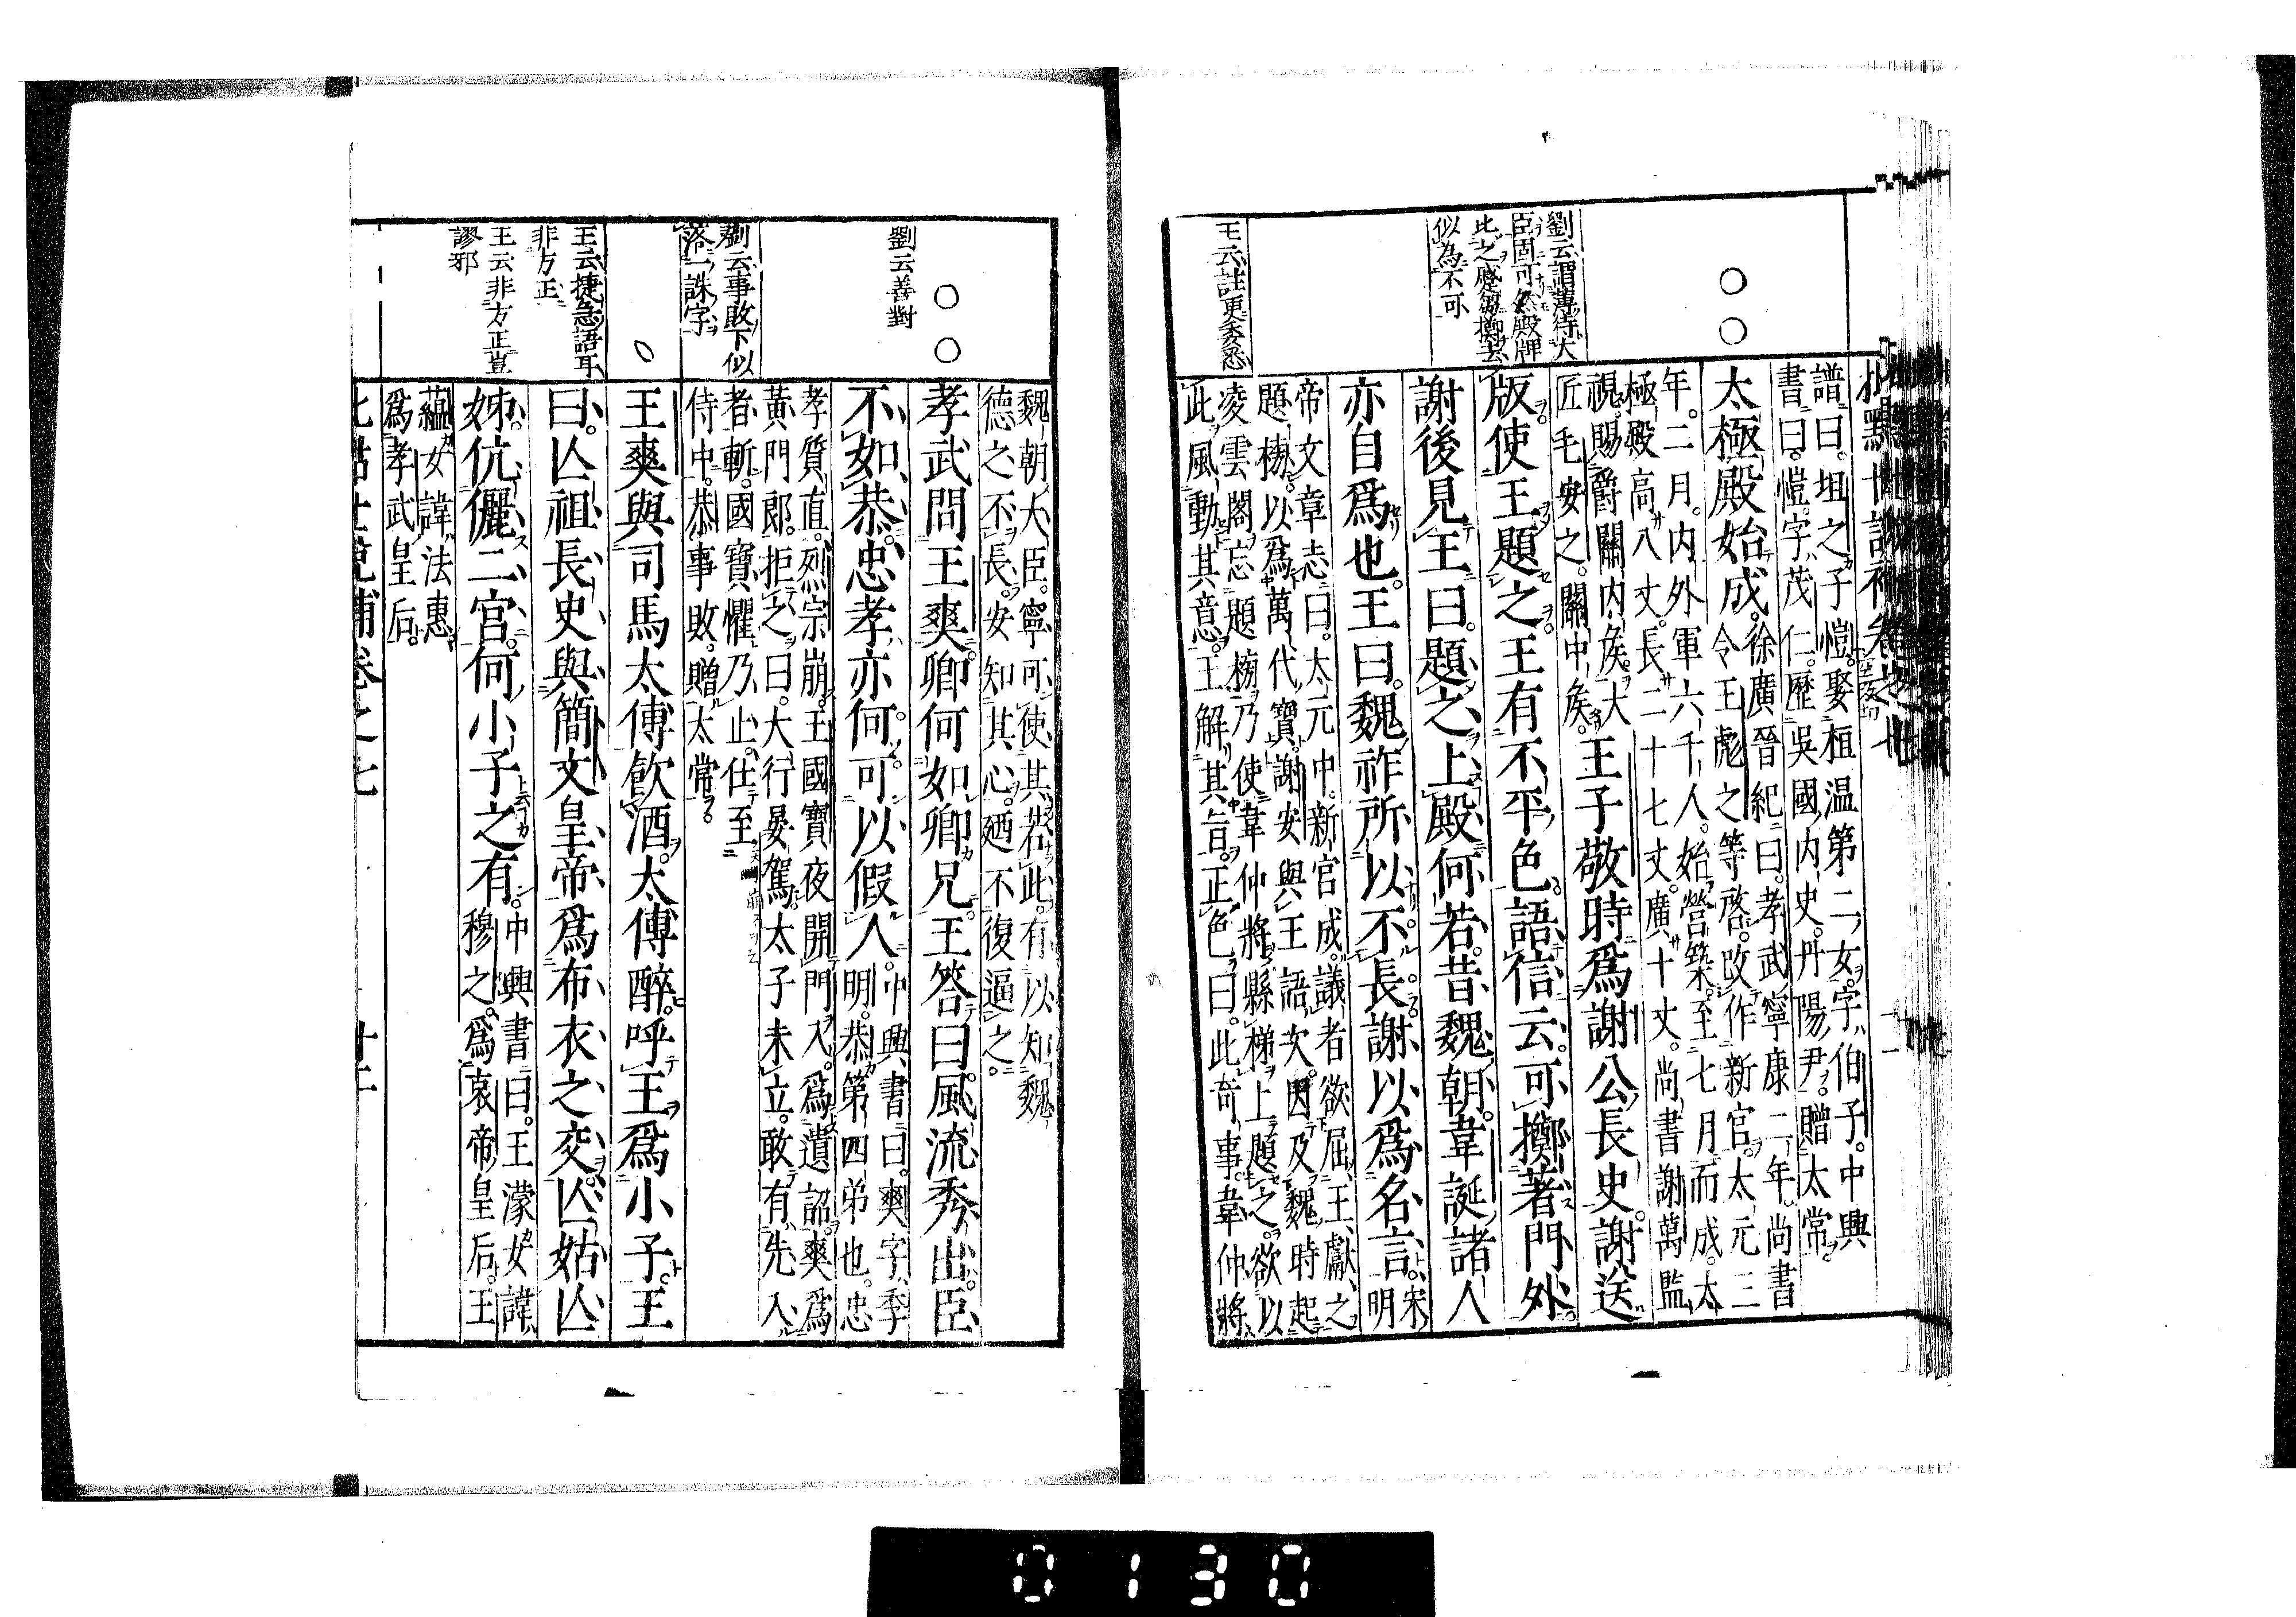 譜曰。坦之子愷。娶桓温第二女。字伯子。中興
書曰。愷字茂仁。歷吳國內史。丹陽尹。贈太常。
太極殿始成。徐廣晉紀曰。孝武寧康二年。尚書
令王彪之等啓。改作新宮。太元三
年。二月。內外軍六千人。始營築。至七月而成。太
極殿高八丈。長二十七丈。廣十丈。尚書謝萬監
視。賜爵關內矦。大
匠毛安之。關中矦。王子敬時爲謝公長史。謝送
版使王題之。王有不平色。語信云。可擲著門外。
謝後見王曰。題之上殿何若。昔魏朝韋誕諸人
亦自爲也。王曰。魏祚所以不長。謝以爲名言。宋明
帝文章志曰。太元中。新宮成。議者欲屈王獻之
題榜。以爲萬代寶。謝安與王語次。因及魏時起
凌雲閣忘題榜。乃使韋仲將縣梯上題之。欲以
此風動其意。王解其旨。正色曰。此奇事。韋仲將
劉云謂薄待大
臣固可然殿牌
此之壁蒭擲去
似為不可
王云註更委悉
魏朝大臣。寧可使其若此。有以知魏
德之不長。安知其心。廼不復逼之。
孝武問王爽。卿何如卿兄。王答曰。風流秀出。臣
不如恭。忠孝亦何可以假人。中興書曰。爽字季
明。恭第四弟也。忠
孝質直。烈宗崩。王國寶夜開門入。爲遺詔。爽爲
黃門郎。拒之曰。大行晏駕。太子未立。敢有先入
者斬。國寶懼乃止。仕至
侍中。恭事敗。贈太常。
王爽與司馬太傅飲酒。太傅醉。呼王爲小子。王
曰。亾祖長史與簡文皇帝爲布衣之交。亾姑亾
姊。伉儷二宮。何小子之有。中興書曰。王濛女諱
穆之。爲哀帝皇后。王
蘊女諱法惠。
爲孝武皇后。
劉云善對
劉云事敗下似
落一誅字
王云捷急語耳
非方正
王云非方正豈
謬邪
0130